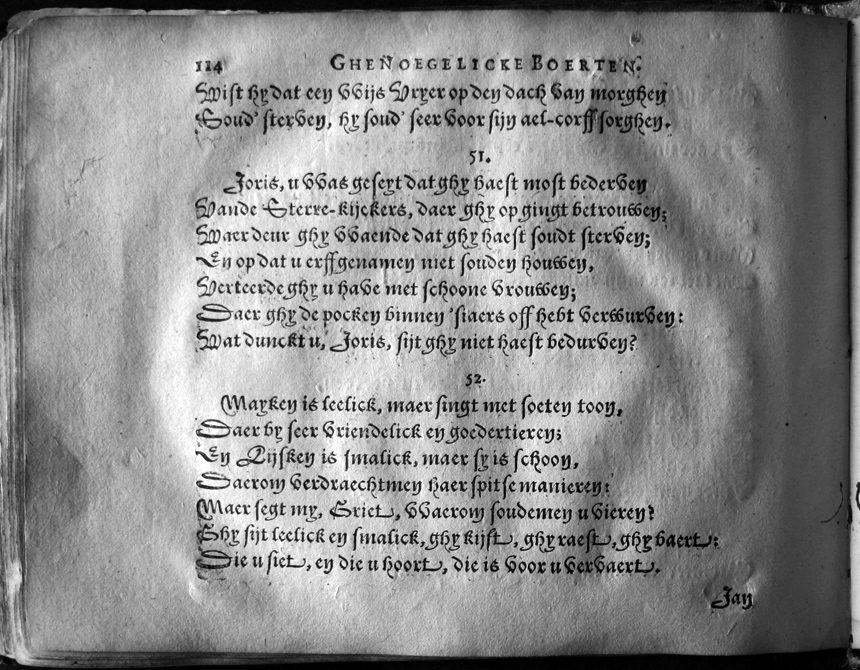 114 GHENOEGELICKE BOERTEN.
Wist hy dat een wijs Vryer op den dach van morghen
Soud' sterven, hy soud' seer voor sijn ael-corff sorghen.
51.
Joris, u was geseyt dat ghy haest most bederven
Vande Sterre-kijckers, daer ghy op gingt betrouwen;
Waer deur ghy waende dat ghy haest soudt sterven;
En op dat u erffgenamen niet souden houwen,
Verteerde ghy u have met schoone vrouwen;
Daer ghy de pocken binnen 'siaers off hebt verwurven:
Wat dunckt u, Joris, sijt ghy niet haest bedurven?
52.
Mayken is leelick, maer singt met soeten toon,
Daer by seer vriendelick en goedertieren;
En Lijsken is smalick, maer sy is schoon,
Daerom verdraechtmen haer spitse manieren:
Maer segt my, Griet, waerom soudemen u vieren?
Ghy sijt leelick en smalick, ghy kijft, ghy raest, ghy baert:
Die u siet, en die u hoort, die is voor u vervaert.
Jan